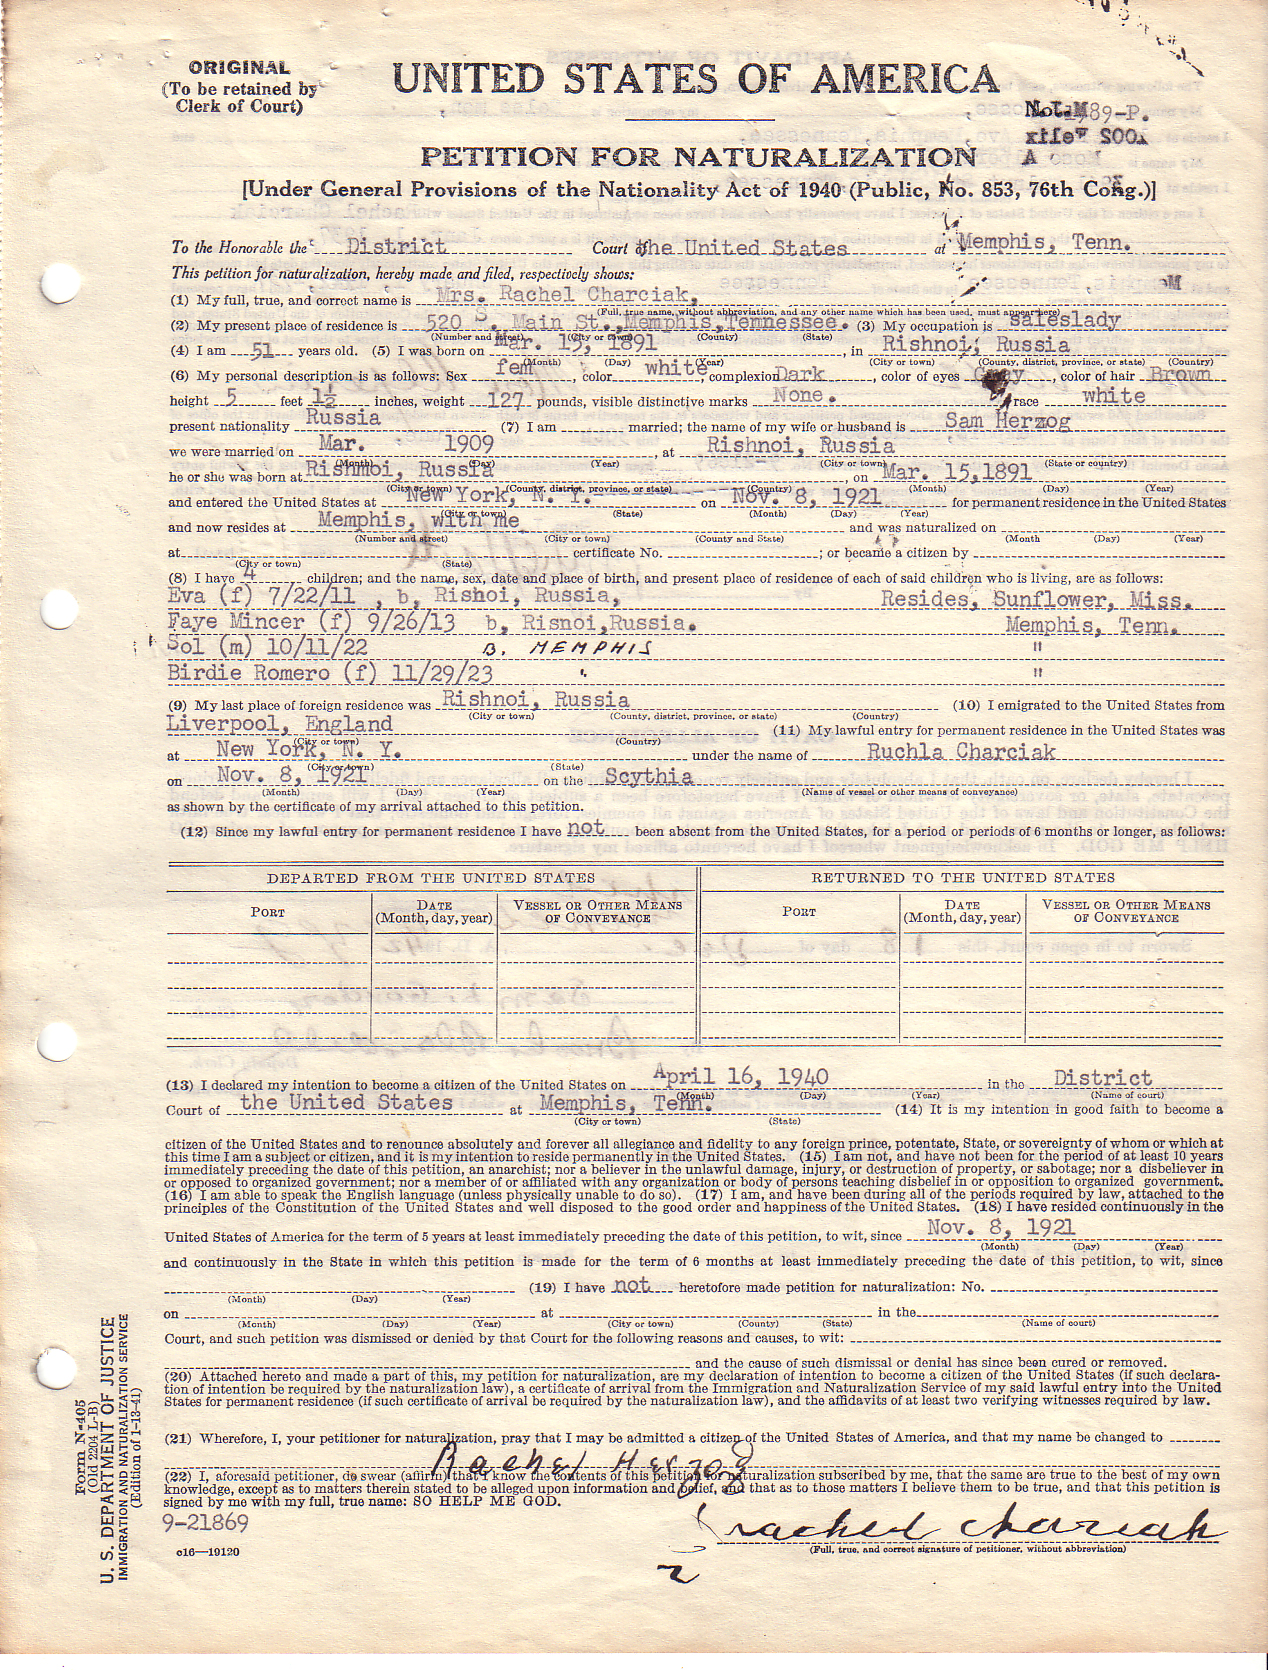 ORIGINAL
(To be retained by
Clerk of Court)
UNITED STATES OF AMERICA
89-P.
PETITION FOR NATURALIZATION
[Under General Provisions of the Nationality Act of 1940 (Public, No. 853, 76th Cong.)]
To the Honorable the District Court of the United States at Memphis, Tenn.
This petition for naturalization, hereby made and filed, respectively shows:
(1) My full, true, and correct name is Mrs. Rachel Charciak,
(Full, true name, without abbreviation, and any other name which has been used, must appear here)
(2) My present place of residence is 520 S. Main St., Memphis, Tennessee. (3) My occupation is saleslady
(Number and street) (City or town) (County) (State)
(4) I am 51 years old. (5) I was born on Mar. 15, 1891, in Rishnoi, Russia
(Month) (Day) (Year) (City or town) (County, district, province, or state) (Country)
(6) My personal description is as follows: Sex fem, color white, complexion Dark, color of eyes Gray, color of hair Brown
height 5 feet 1½ inches, weight 127 pounds, visible distinctive marks None. race white
present nationality Russia (7) I am married; the name of my wife or husband is Sam Herzog
we were married on Mar. 1909, at Rishnoi, Russia
(Month) (Day) (Year) (City or town) (State or country)
he or she was born at Russia, on Mar. 15,1891
(City or town) (County, district, province, or state) (Country) (Month) (Day) (Year)
and entered the United States at New York, N. Y. on Nov. 8, 1921 for permanent residence in the United States
(City or town) (State) (Month) (Day) (Year)
and now resides at Memphis, with me and was naturalized on
(Number and street) (City or town) (County and State) (Month (Day) (Year)
at certificate No. ; or became a citizen by
(City or town) (State)
(8) I have 4 children; and the name, sex, date and place of birth, and present place of residence of each of said children who is living, are as follows:
Eva (f) 7/22/11 , b, Rishoi, Russia, Resides, Sunflower, Miss.
Faye Mincer (f) 9/26/13 b, Risnoi,Russia. Memphis, Tenn.
Sol (m) 10/11/22 B. MEMPHIS "
Birdie Romero (f) 11/29/23 " "
(9) My last place of foreign residence was Rishnoi, Russia (10) I emigrated to the United States from
(City or town) (County, district, province, or state) (Country)
Liverpool, England (11) My lawful entry for permanent residence in the United States was
(City or town) (Country)
at New York, N. Y. under the name of Ruchla Charciak
(City or town) (State)
on Nov. 8, 1921 on the Scythia
(Month) (Day) (Year) (Name of vessel or other means of conveyance)
as shown by the certificate of my arrival attached to this petition.
(12) Since my lawful entry for permanent residence I have not been absent from the United States, for a period or periods of 6 months or longer, as follows:
DEPARTED FROM THE UNITED STATES RETURNED TO THE UNITED STATES
PORT DATE (Month, day, year) VESSEL OR OTHER MEANS OF CONVEYANCE PORT DATE (Month, day, year) VESSEL OR OTHER MEANS OF CONVEYANCE
(13) I declared my intention to become a citizen of the United States on April 16, 1940 in the District
(Month) (Day) (Year) (Name of court)
Court of the United States at Memphis, Tenn. (14) It is my intention in good faith to become a
(City or town) (State)
citizen of the United States and to renounce absolutely and forever all allegiance and fidelity to any foreign prince, potentate, State, or sovereignty of whom or which at
this time I am a subject or citizen, and it is my intention to reside permanently in the United States. (15) I am not, and have not been for the period of at least 10 years
immediately preceding the date of this petition, an anarchist; nor a believer in the unlawful damage, injury, or destruction of property, or sabotage; nor a disbeliever in
or opposed to organized government; nor a member of or affiliated with any organization or body of persons teaching disbelief in or opposition to organized government.
(16) I am able to speak the English language (unless physically unable to do so). (17) I am, and have been during all of the periods required by law, attached to the
principles of the Constitution of the United States and well disposed to the good order and happiness of the United States. (18) I have resided continuously in the
United States of America for the term of 5 years at least immediately preceding the date of this petition, to wit, since Nov. 8, 1921
(Month) (Day) (Year)
and continuously in the State in which this petition is made for the term of 6 months at least immediately preceding the date of this petition, to wit, since
(19) I have not heretofore made petition for naturalization: No.
(Month) (Day) (Year)
on at in the
(Month) (Day) (Year) (City or town) (County) (State) (Name of court)
Court, and such petition was dismissed or denied by that Court for the following reasons and causes, to wit:
and the cause of such dismissal or denial has since been cured or removed.
(20) Attached hereto and made a part of this, my petition for naturalization, are my declaration of intention to become a citizen of the United States (if such declara-
tion of intention be required by the naturalization law), a certificate of arrival from the Immigration and Naturalization Service of my said lawful entry into the United
States for permanent residence (if such certificate of arrival be required by the naturalization law), and the affidavits of at least two verifying witnesses required by law.
(21) Wherefore, I, your petitioner for naturalization, pray that I may be admitted a citizen of the United States of America, and that my name be changed to
Rachel Herzog
(22) I, aforesaid petitioner, do swear (affirm) that I know the contents of this petition for naturalization subscribed by me, that the same are true to the best of my own
knowledge, except as to matters therein stated to be alleged upon information and belief, and that as to those matters I believe them to be true, and that this petition is
signed by me with my full, true name: SO HELP ME GOD.
9-21869
rachel chariak
c16—19120
(Full, true, and correct signature of petitioner, without abbreviation)
2
Form N-405
(Old 2204 L-B)
U. S. DEPARTMENT OF JUSTICE
IMMIGRATION AND NATURALIZATION SERVICE
(Edition of 1-13-41)